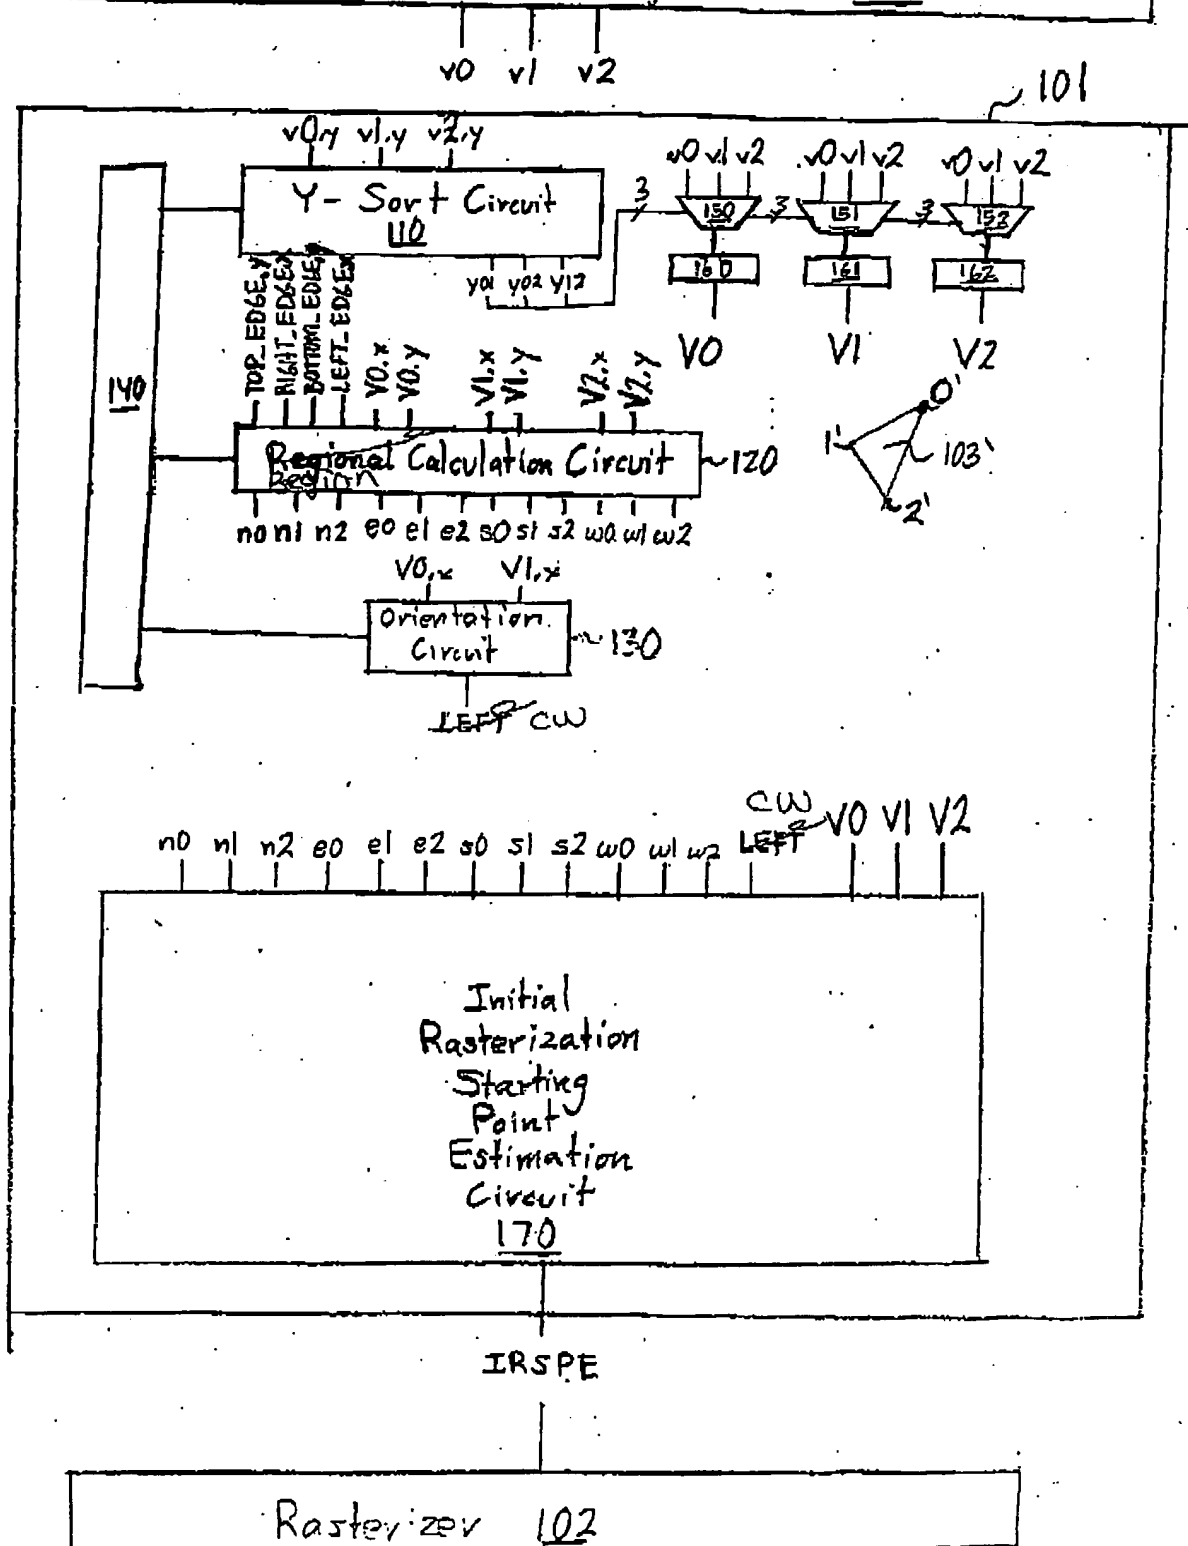 v0 v1 v2
101
v0.y v1.y v2.y
v0 v1 v2 v0 v1 v2 v0 v1 v2
Y-Sort Circuit
110
3 150 3 151 3 153
y01 y02 y12
160 161 162
V0 V1 V2
TOP_EDGE.y
RIGHT_EDGE.x
BOTTOM_EDGE.y
LEFT_EDGE.x
V0.x
V0.y
V1.x
V1.y
V2.x
V2.y
140
0'
1'
103'
2'
Regional Calculation Circuit 120
Region
n0 n1 n2 e0 e1 e2 s0 s1 s2 w0 w1 w2
V0.x V1.x
Orientation
Circuit
130
LEFT CW
CW
n0 n1 n2 e0 e1 e2 s0 s1 s2 w0 w1 w2 LEFT V0 V1 V2
Initial
Rasterization
Starting
Point
Estimation
Circuit
170
IRSPE
Rasterizer 102